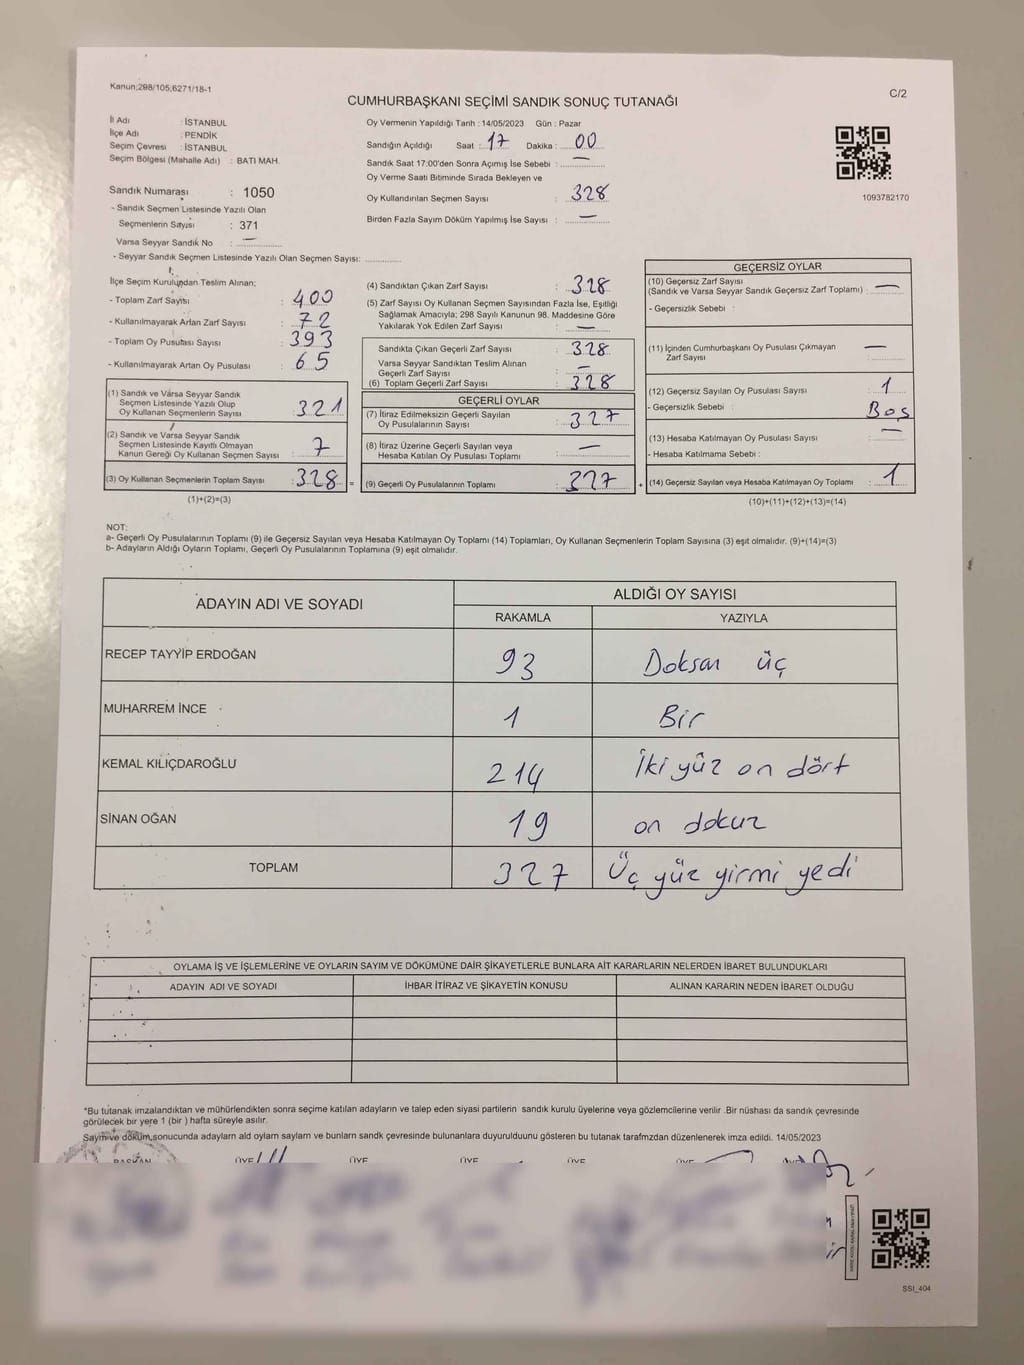 Kanun;298/105,6271/18-1
C/2
CUMHURBAŞKANI SEÇİMİ SANDIK SONUÇ TUTANAĞI
İl Adı : İSTANBUL
İlçe Adı : PENDİK
Seçim Çevresi : İSTANBUL
Seçim Bölgesi (Mahalle Adı) : BATI MAH.
Oy Vermenin Yapıldığı Tarih : 14/05/2023 Gün : Pazar
Sandığın Açıldığı Saat : 17 Dakika : 00
Sandık Saat 17:00'den Sonra Açımış İse Sebebi : —
Oy Verme Saati Bitiminde Sırada Bekleyen ve
Oy Kullandırılan Seçmen Sayısı : 328
Birden Fazla Sayım Döküm Yapılmış İse Sayısı : —
1093782170
Sandık Numarası : 1050
- Sandık Seçmen Listesinde Yazılı Olan
Seçmenlerin Sayısı : 371
Varsa Seyyar Sandık No : —
- Seyyar Sandık Seçmen Listesinde Yazılı Olan Seçmen Sayısı:
İlçe Seçim Kurulundan Teslim Alınan;
- Toplam Zarf Sayısı : 400
- Kullanılmayarak Artan Zarf Sayısı : 72
- Toplam Oy Pusulası Sayısı : 393
- Kullanılmayarak Artan Oy Pusulası : 65
(1) Sandık ve Varsa Seyyar Sandık
Seçmen Listesinde Yazılı Olup
Oy Kullanan Seçmenlerin Sayısı : 321
(2) Sandık ve Varsa Seyyar Sandık
Seçmen Listesinde Kayıtlı Olmayan
Kanun Gereği Oy Kullanan Seçmen Sayısı : 7
(3) Oy Kullanan Seçmenlerin Toplam Sayısı : 328 =
(1)+(2)=(3)
(4) Sandıktan Çıkan Zarf Sayısı : 328
(5) Zarf Sayısı Oy Kullanan Seçmen Sayısından Fazla İse, Eşitliği
Sağlamak Amacıyla; 298 Sayılı Kanunun 98. Maddesine Göre
Yakılarak Yok Edilen Zarf Sayısı : —
Sandıkta Çıkan Geçerli Zarf Sayısı : 328
Varsa Seyyar Sandıktan Teslim Alınan
Geçerli Zarf Sayısı : —
(6) Toplam Geçerli Zarf Sayısı : 328
GEÇERLİ OYLAR
(7) İtiraz Edilmeksizin Geçerli Sayılan
Oy Pusulalarının Sayısı : 327
(8) İtiraz Üzerine Geçerli Sayılan veya
Hesaba Katılan Oy Pusulası Toplamı : —
(9) Geçerli Oy Pusulalarının Toplamı : 327 +
GEÇERSİZ OYLAR
(10) Geçersiz Zarf Sayısı
(Sandık ve Varsa Seyyar Sandık Geçersiz Zarf Toplamı) : —
- Geçersizlik Sebebi :
(11) İçinden Cumhurbaşkanı Oy Pusulası Çıkmayan
Zarf Sayısı : —
(12) Geçersiz Sayılan Oy Pusulası Sayısı : 1
- Geçersizlik Sebebi : Boş
(13) Hesaba Katılmayan Oy Pusulası Sayısı : —
- Hesaba Katılmama Sebebi :
(14) Geçersiz Sayılan veya Hesaba Katılmayan Oy Toplamı : 1
(10)+(11)+(12)+(13)=(14)
NOT:
a- Geçerli Oy Pusulalarının Toplamı (9) ile Geçersiz Sayılan veya Hesaba Katılmayan Oy Toplamı (14) Toplamları, Oy Kullanan Seçmenlerin Toplam Sayısına (3) eşit olmalıdır. (9)+(14)=(3)
b- Adayların Aldığı Oyların Toplamı, Geçerli Oy Pusulalarının Toplamına (9) eşit olmalıdır.
ADAYIN ADI VE SOYADI
ALDIĞI OY SAYISI
RAKAMLA YAZIYLA
RECEP TAYYİP ERDOĞAN 93 Doksan üç
MUHARREM İNCE 1 Bir
KEMAL KILIÇDAROĞLU 214 İki yüz on dört
SİNAN OĞAN 19 on dokuz
TOPLAM 327 Üç yüz yirmi yedi
OYLAMA İŞ VE İŞLEMLERİNE VE OYLARIN SAYIM VE DÖKÜMÜNE DAİR ŞİKAYETLERLE BUNLARA AİT KARARLARIN NELERDEN İBARET BULUNDUKLARI
ADAYIN ADI VE SOYADI İHBAR İTİRAZ VE ŞİKAYETİN KONUSU ALINAN KARARIN NEDEN İBARET OLDUĞU
*Bu tutanak imzalandıktan ve mühürlendikten sonra seçime katılan adayların ve talep eden siyasi partilerin sandık kurulu üyelerine veya gözlemcilerine verilir .Bir nüshası da sandık çevresinde
görülecek bir yere 1 (bir ) hafta süreyle asılır.
Sayim ve döküm,sonucunda adaylarn ald oylarn saylarn ve bunlarn sandk çevresinde bulunanlara duyurulduunu gösteren bu tutanak tarafmzdan düzenlenerek imza edildi. 14/05/2023
BAŞKAN ÜYE ÜYE ÜYE ÜYE ÜYE
SSI_404